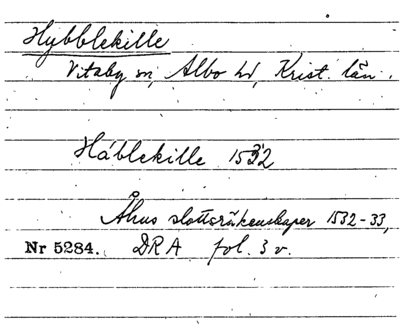 Hybblekille
Vitaby sn, Albo hd, Krist. län.
Håblekille 1532
Åhus slottsräkenskaper 1532-33,
Nr 5284. DRA fol. 3 v.